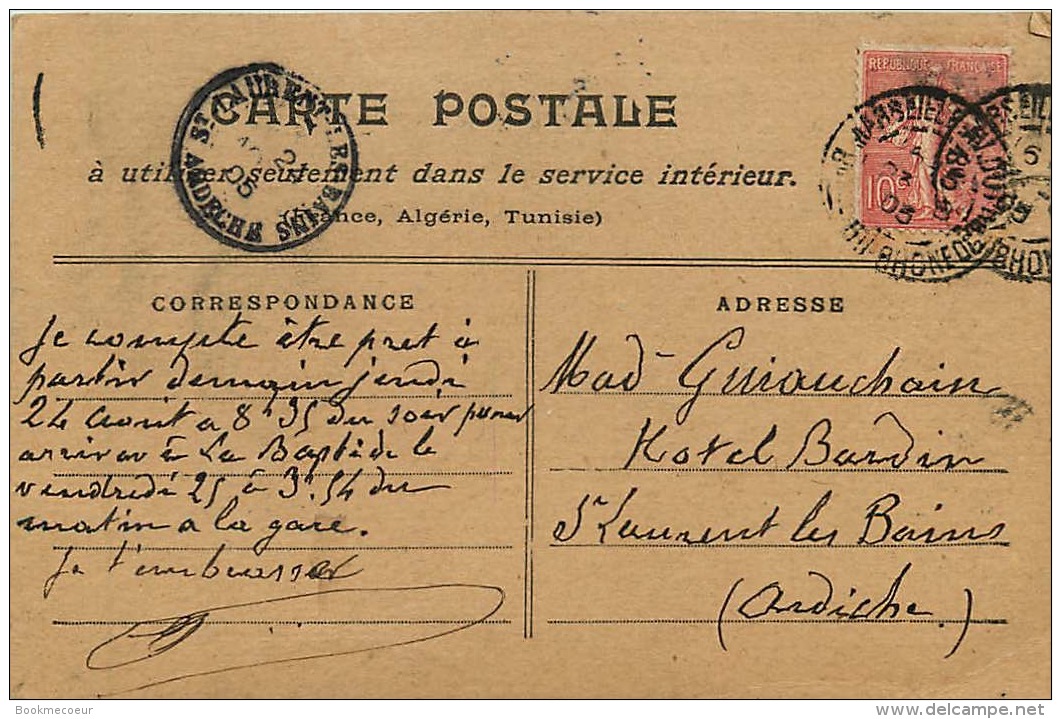 CARTE POSTALE
à utiliser seulement dans le service intérieur.
(France, Algérie, Tunisie)
REPUBLIQUE FRANÇAISE
10
ST LAURENT-LES-BAINS
ARDECHE
05
MARSEILLE
BOUCHES DU RHONE
05
CORRESPONDANCE
Je compte être pret à
partir demain jeudi
24 aout a 8h35 du soir pour
arriver à La Bastide le
vendredi 25 à 3h.54 du
matin a la gare.
Je t'embrasse
ADRESSE
Mad Guirauchain
Hotel Bardin
St Laurent les Bains
(Ardèche.)
Bookmecoeur
delcampe.net